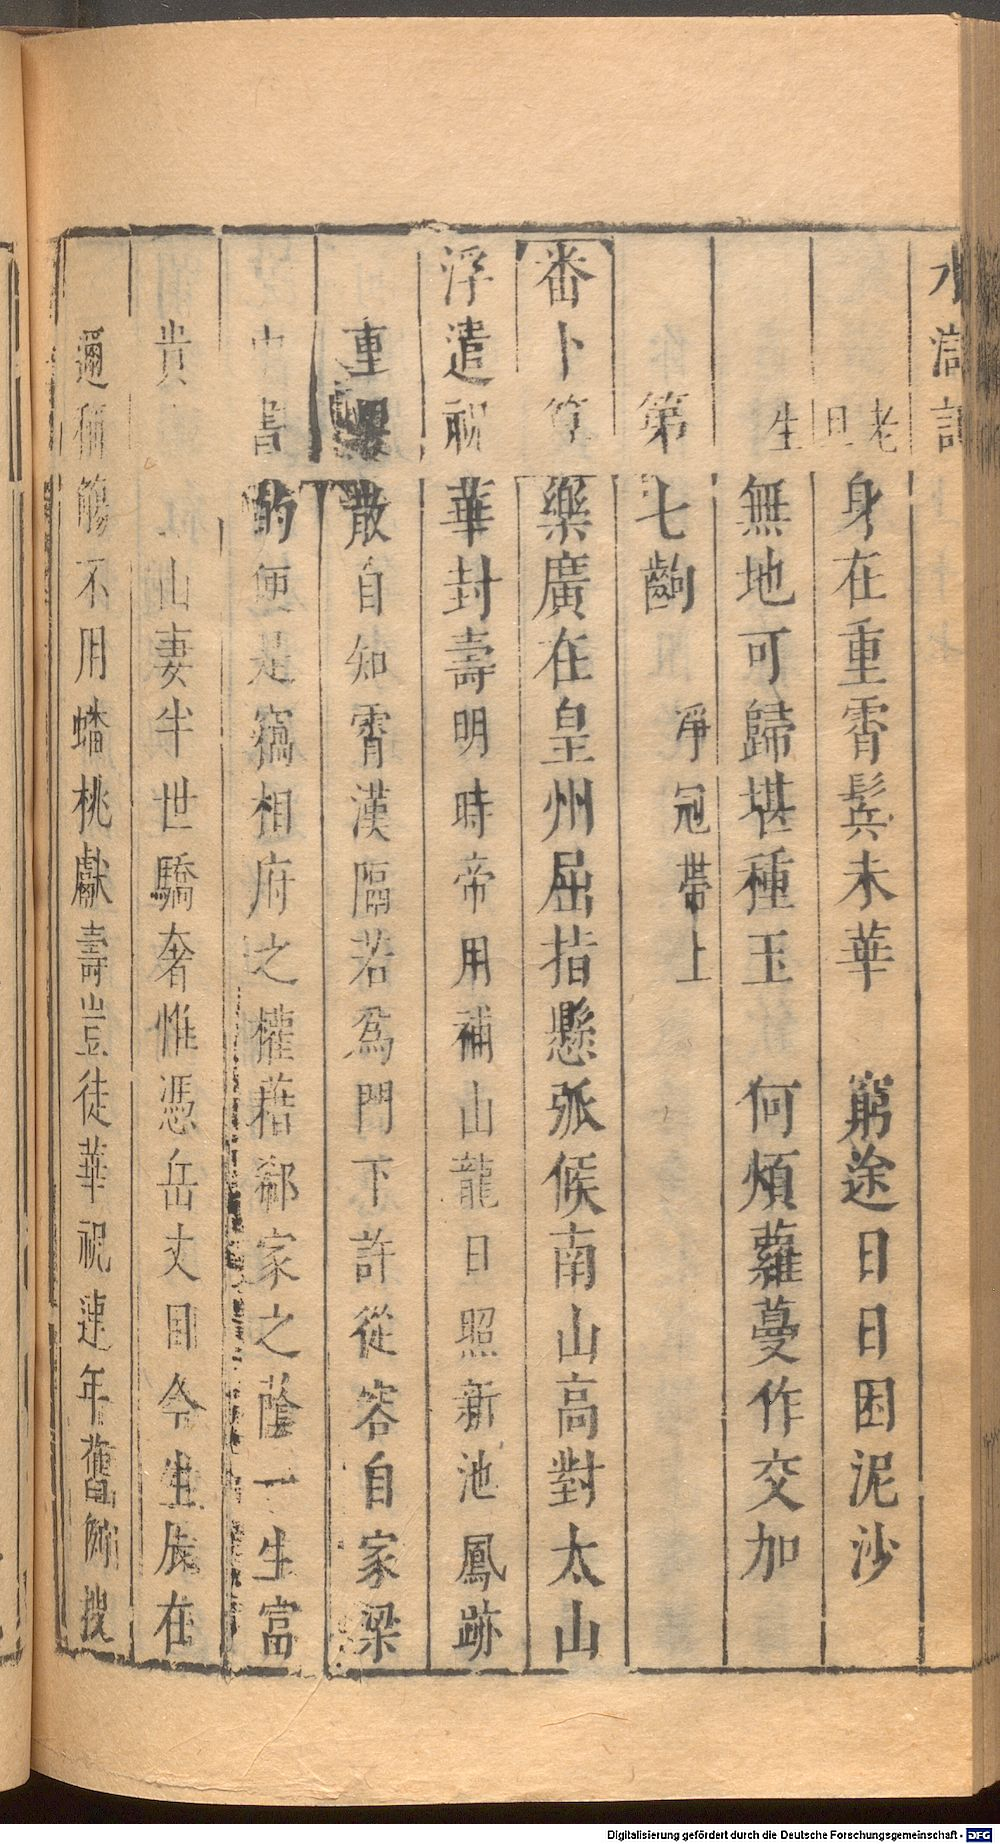 水滸記
老旦 身在重霄鬂未華 窮途日日困泥沙
生 無地可歸堪種玉 何煩蘿蔓作交加
第七齣 淨冠帶上
番卜算 樂廣在皇州屈指懸弧候南山高對太山
重 浮遣祝華封壽明時帝用補山龍日照新池鳳跡
散自知霄漢隔若爲門下許從容自家梁
中書的便是竊相府之權藉郗家之蔭一生富
貴 山妻半世驕奢惟憑岳丈目令生辰在
邇稱觴不用蟠桃獻壽豈徒華祝連年舊例搜
Digitalisierung gefördert durch die Deutsche Forschungsgemeinschaft - DFG